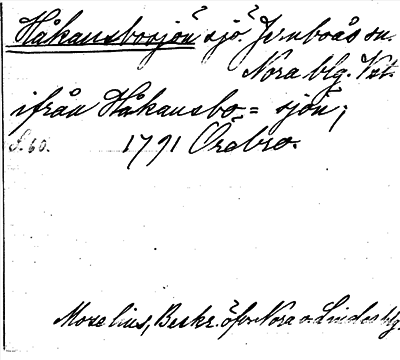 Håkansbosjön? sjö? Jernboås sn.
Nora blg. Vst.
ifrån Håkansbo = sjön;
s. 60. 1791 Örebro.
Moselius, Beskr. öfv. Nora o. Lindes blg.